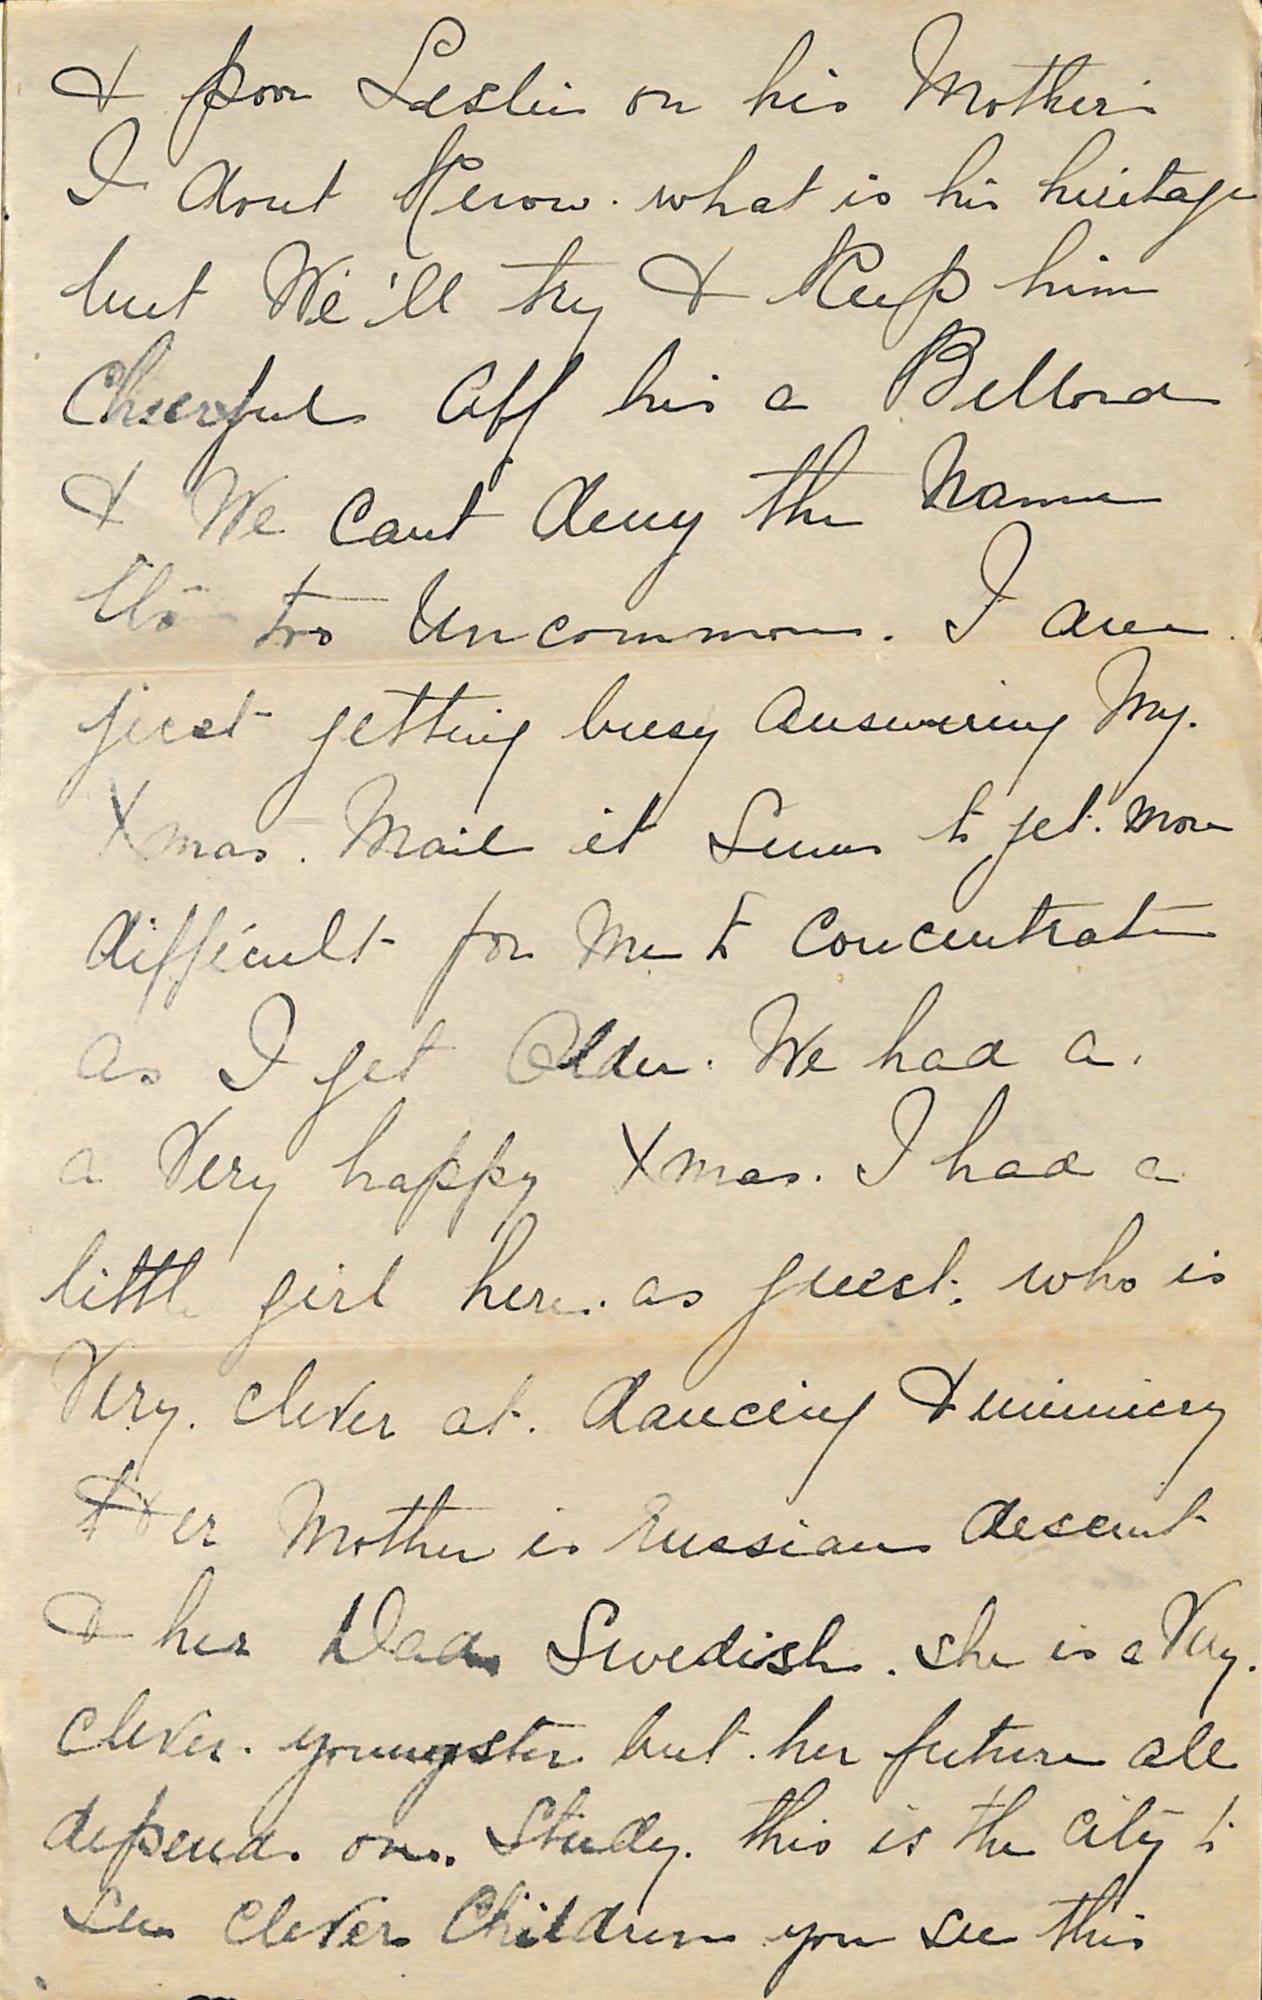 & poor Leslie on his Mother's
I dont Know. what is his heritage
but We'll try & Keep him
Cheerful Aff his a Bellord
& We cant deny the Name
its too Uncommon. I am
just getting busy answering My.
Xmas. Mail it Seems to get. more
difficult for Me to Concentrate
as I get Older. We had a.
a Very happy Xmas. I had a
little girl here. as guest. who is
Very. clever at. dancing & mimicry
Her Mother is russian descent
& her Dad Swedish. she is a Very.
clever. youngster but. her future all
depends on. Study. this is the city to
see clever Children you see this